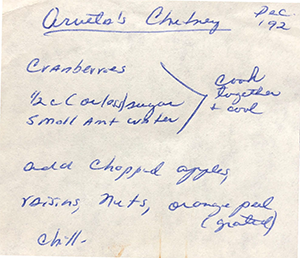 Arveta's Chutney
Dec.
'92
Cranberries
1/2 c (or less) sugar
Small amt water
cook
together
+ cool
add chopped apples,
raisins, nuts, orange peel
(grated)
chill.